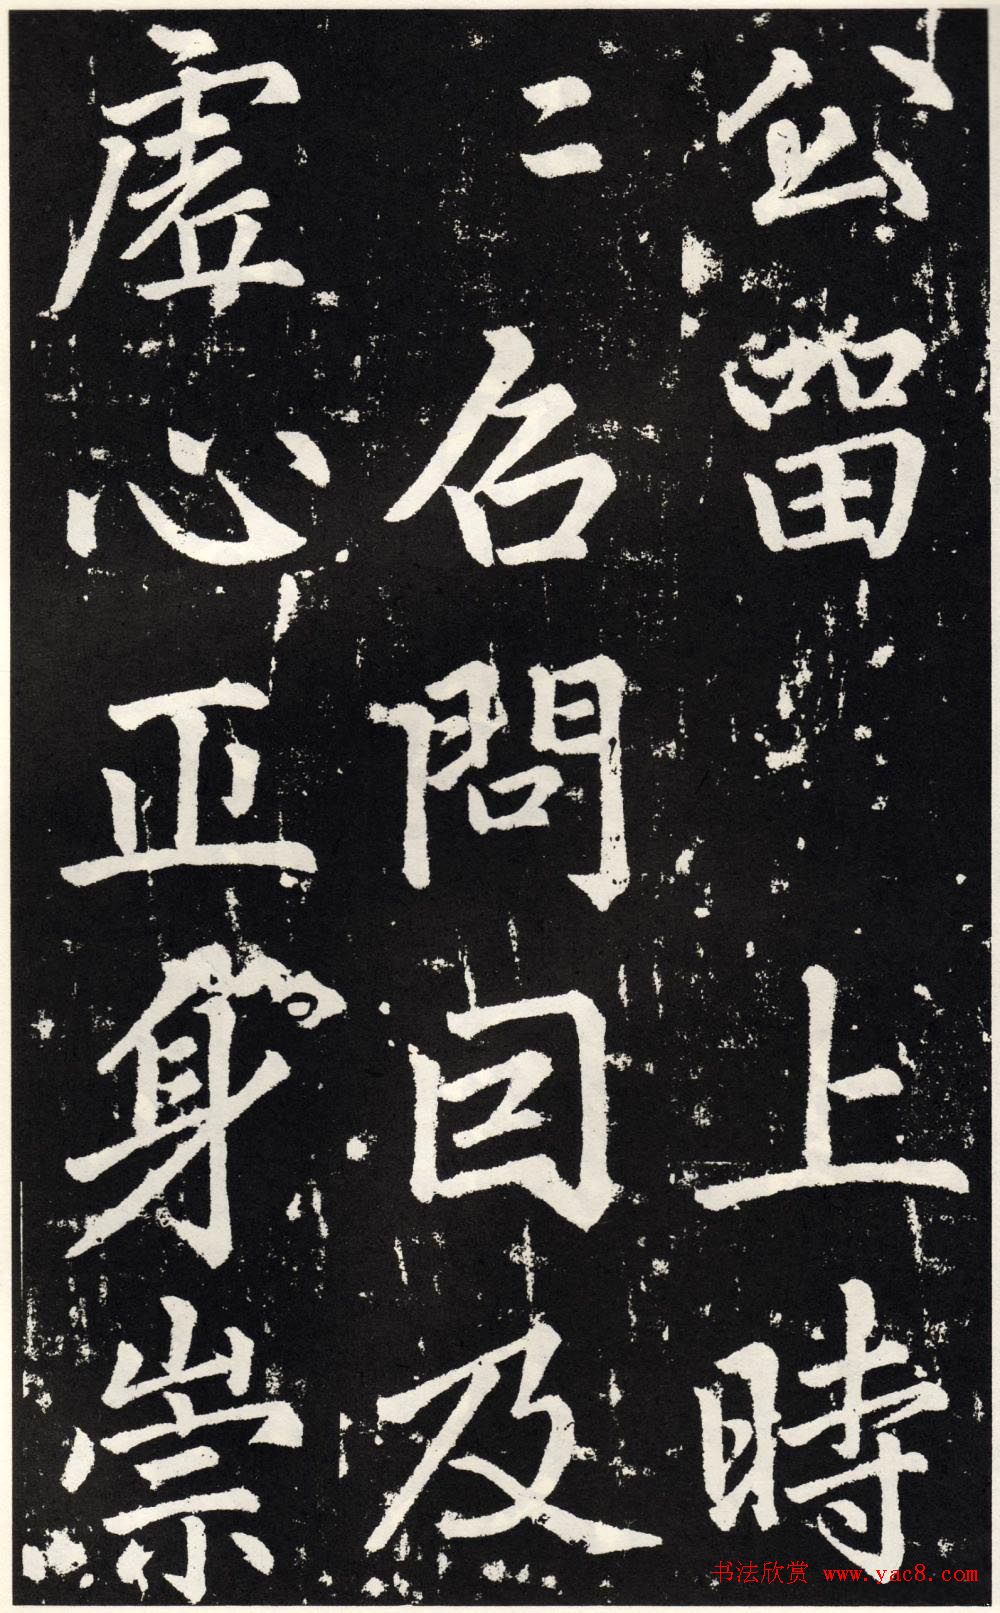 留 上時
二召問曰及
虛心正身崇
书法欣赏 www.yac8.com